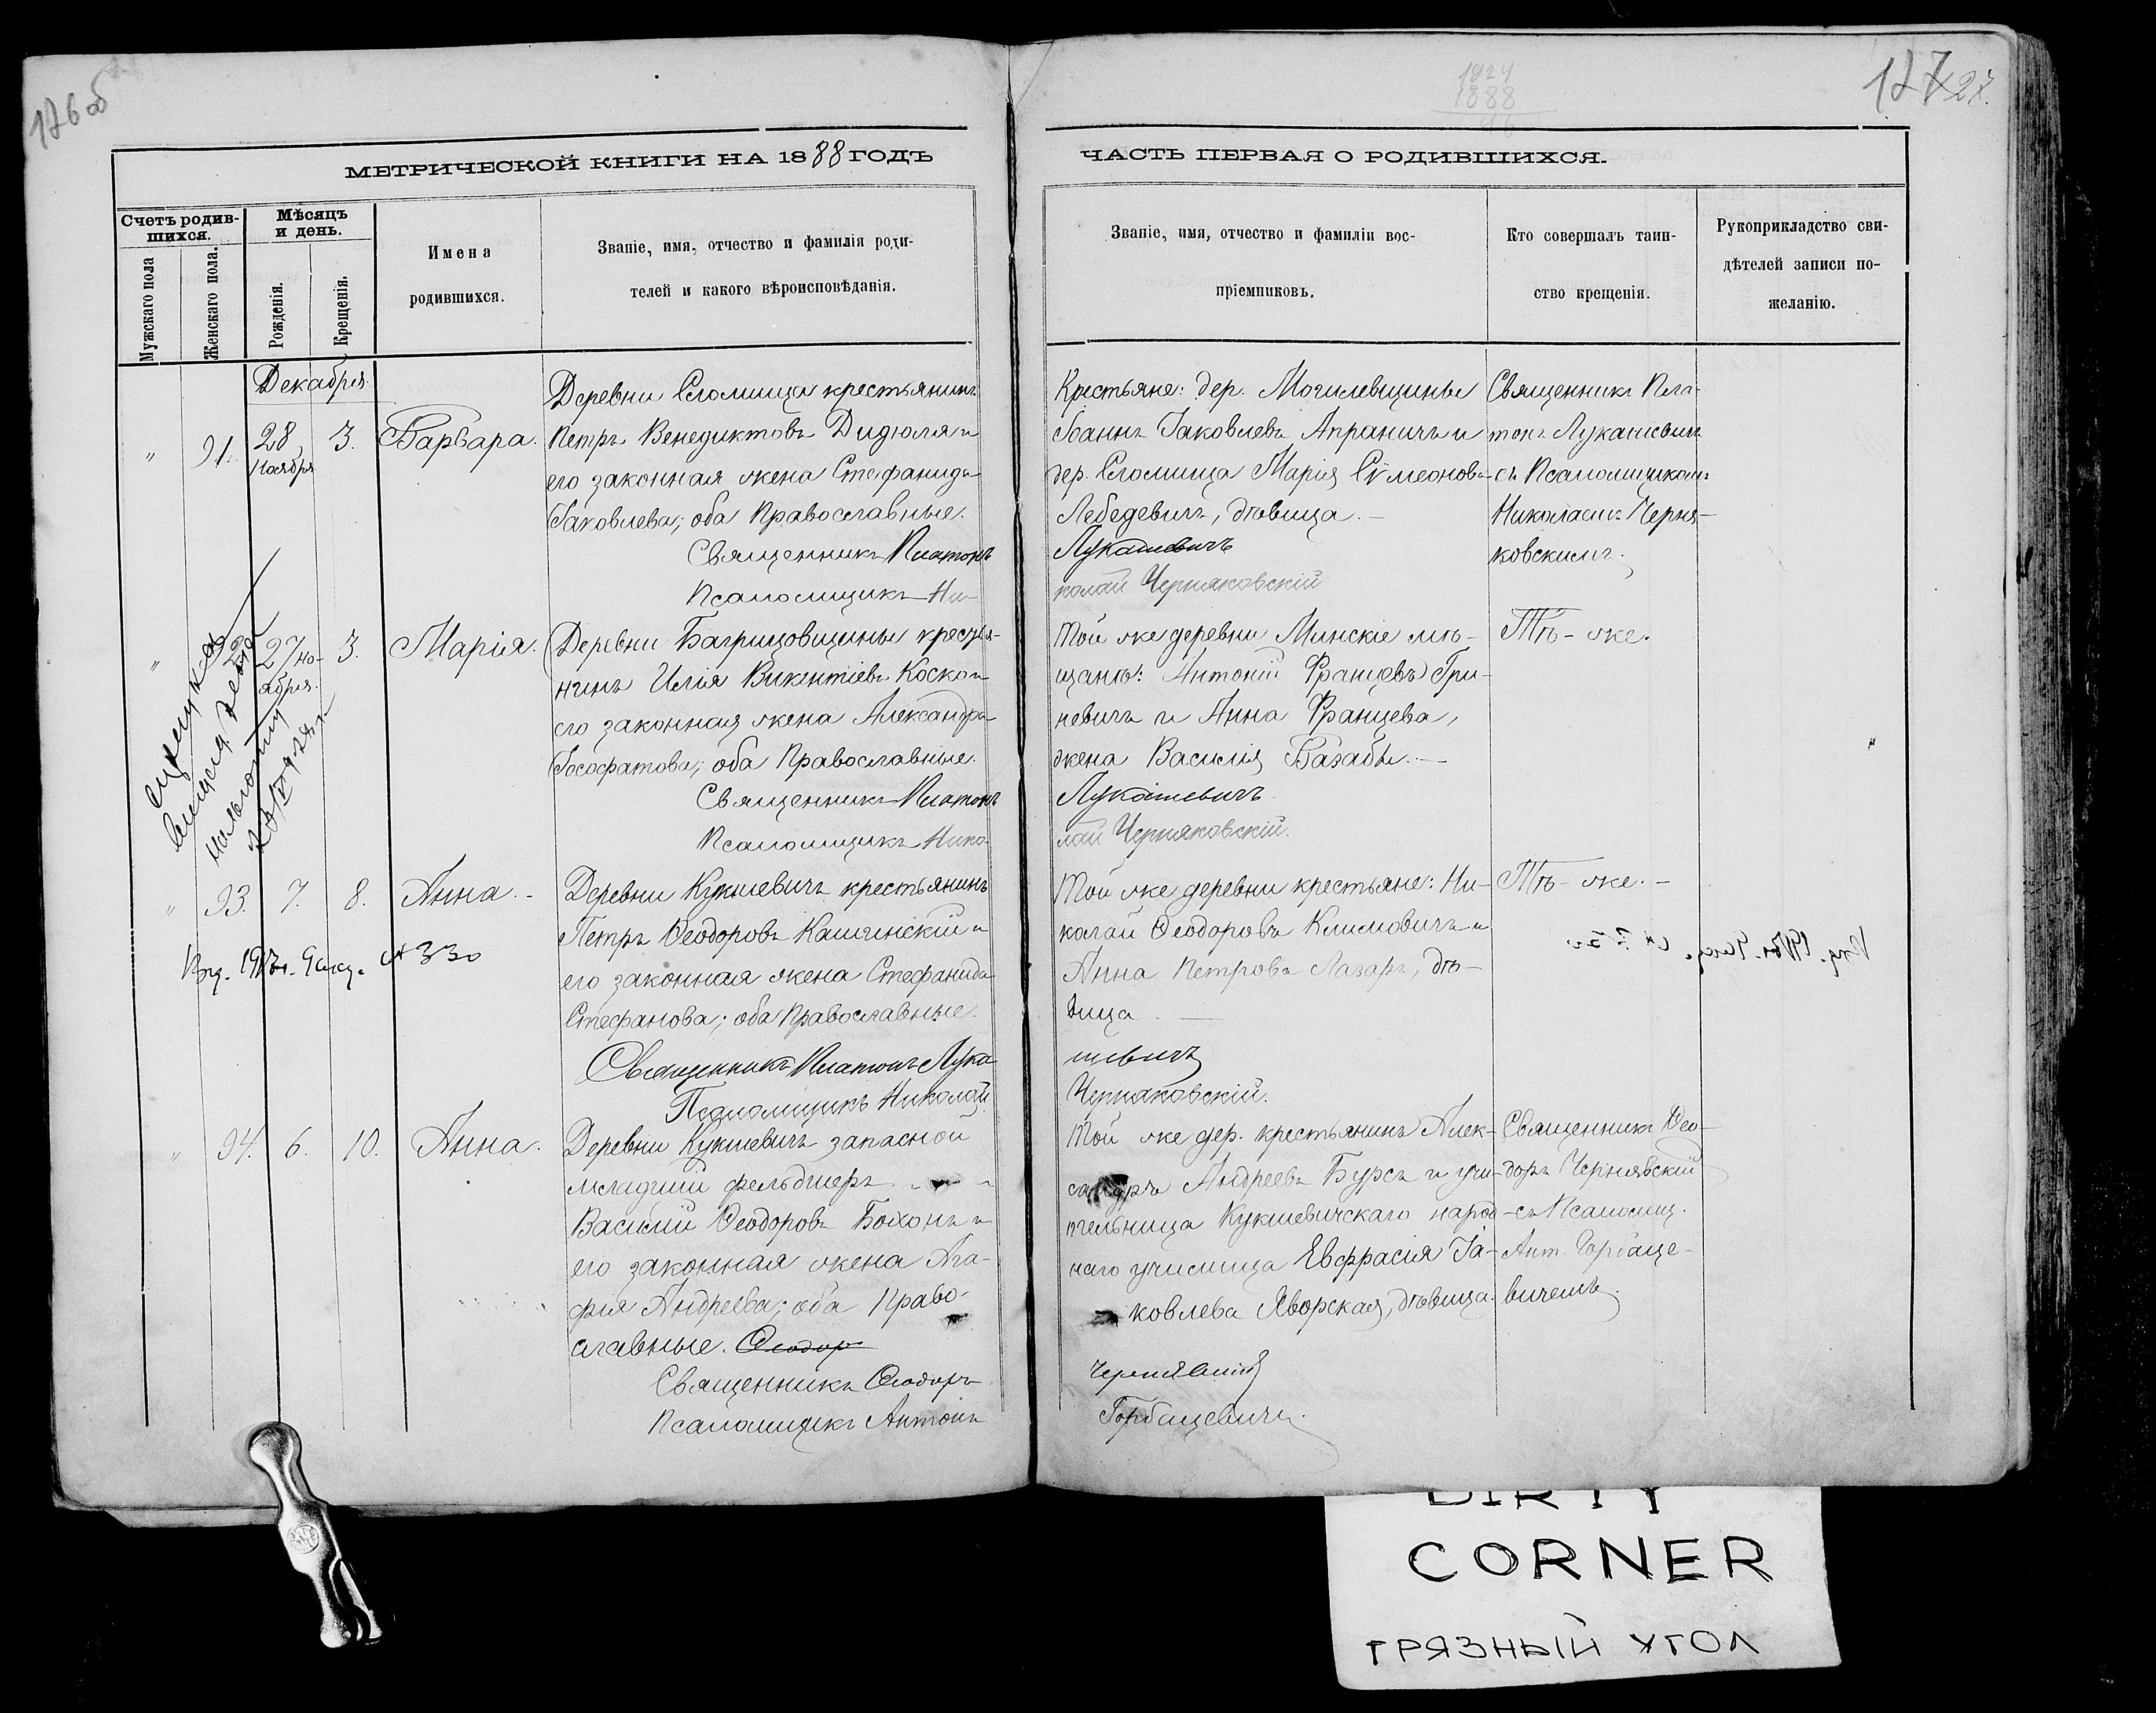 176об
1924
1888
177 27.
МЕТРИЧЕСКОЙ КНИГИ НА 1888 ГОДЪ
ЧАСТЬ ПЕРВАЯ О РОДИВШИХСЯ.
Счетъ родив-
шихся.
Мѣсяцъ
и день.
Мужскаго пола
Женскаго пола.
Рожденія.
Крещенія.
Имена
родившихся.
Званіе, имя, отчество и фамилія роди-
телей и какого вѣроисповѣданія.
Званіе, имя, отчество и фамиліи вос-
пріемниковъ.
Кто совершалъ таин-
ство крещенія.
Рукоприкладство сви-
дѣтелей записи по-
желанію.
Декабря.
" 91. 28 Ноября 3. Варвара.
Деревни Сломища крестьянинъ
Петръ Венедиктовъ Дидюля и
его законная жена Стефанида
Іаковлева; оба Православные.
Священникъ Платонъ
Псаломщикъ Ни-
Крестьяне: дер. Могилевщины
Іоаннъ Іаковлевъ Апраничъ и
дер. Сломища Марія Сѵмеонова
Лебедевичъ, дѣвица. —
Лукашевичъ
колай Черняковскій
Священникъ Пла-
тонъ Лукашевичъ
съ Псаломщикомъ
Николаемъ Черня-
ковскимъ.
" 92 27 Но-
ября. 3. Марія.
Деревни Багрицовщины крестья-
нинъ Илія Викентіевъ Коско и
его законная жена Александра
Іосафатова; оба Православные.
Священникъ Платонъ
Псаломщикъ Нико-
Той же деревни Минскіе мѣ-
щане: Антоній Францевъ Гри-
невичъ и Анна Францева,
жена Василія Базабы. —
Лукашевичъ
лай Черняковскій.
Тѣ-же.
" 93. 7. 8. Анна. -
Деревни Кукшевичъ крестьянинъ
Петръ Ѳеодоровъ Кашинскій и
его законная жена Стефанида
Стефанова; оба Православные.
Священникъ Платонъ Лука
Псаломщикъ Николай
Той же деревни крестьяне: Ни-
колай Ѳеодоровъ Климовичъ и
Анна Петрова Лазарь, дѣ-
вица. —
шевичъ
Черняковскій.
Тѣ-же. -
№ 330
" 94. 6. 10. Анна.
Деревни Кукшевичъ запасной
младшій фельдшеръ
Василій Ѳеодоровъ Боханъ и
его законная жена Ага-
фія Андреева; оба Право-
славные. Ѳеодор
Священникъ Ѳеодоръ
Псаломщикъ Антонъ
Той же дер. крестьянинъ Алек-
сандръ Андреевъ Бурсъ и учи-
тельница Кукшевичскаго народ-
наго училища Евфрасія Іа-
ковлева Яворская, дѣвица.
Чернявскій
Горбацевичъ.
Священникъ Ѳео-
доръ Чернявскій
съ Псаломщ.
Ант. Горбаце-
вичемъ.
DIRTY
CORNER
ГРЯЗНЫЙ УГОЛ